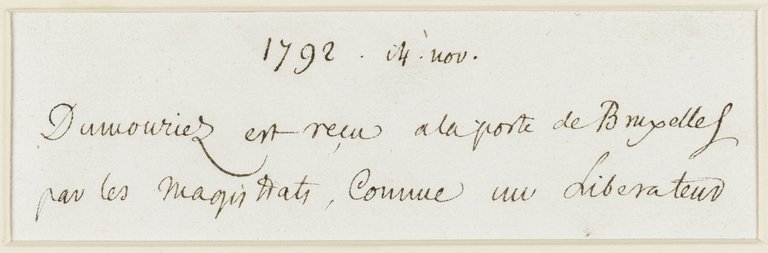 1792 . 14. nov.
Dumouriez est reçu a la porte de Bruxelles
par les Magistrats, Comme un Liberateur